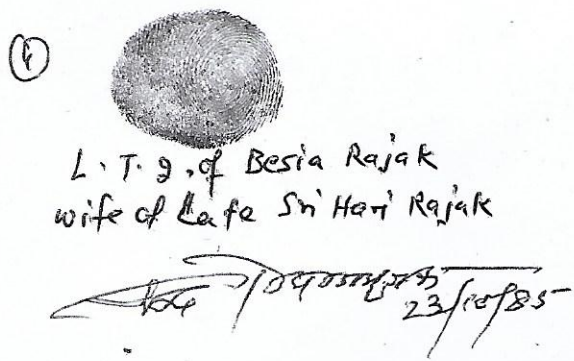 4
L. T. I. of Besia Rajak
wife of Late Sri Hari Rajak
23/10/85